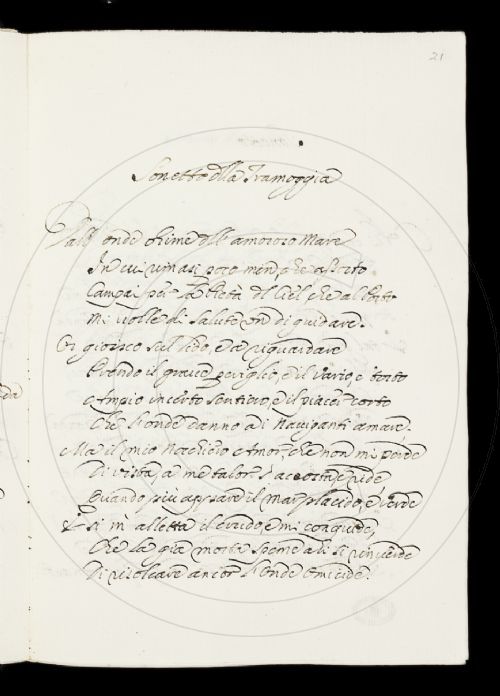 21
Sonetto della Tramoggia
Dall' onde ohime dell' amoroso Mare
In cui rimasi poco men, che
Campai per la Pietà del Ciel che al
Mi volle di salute un dì guidare.
Or giunto sul lido, e a riguardare
Prendo il grave periglio, e il vario, e torto
Ampio incerto sentiero, e il piacer corto
Che l'onde danno a i Naviganti amare.
Ma il mio Nocchiero Amor, che non mi perde
Di vista, a me talor s' accosta, e ride
Quando più appare il mar placido, e verde
E sì m' alletta il crudo, e mi conquide,
Che la già morta speme al dì si rinverde
Di risolcare ancor l'onde Omicide.